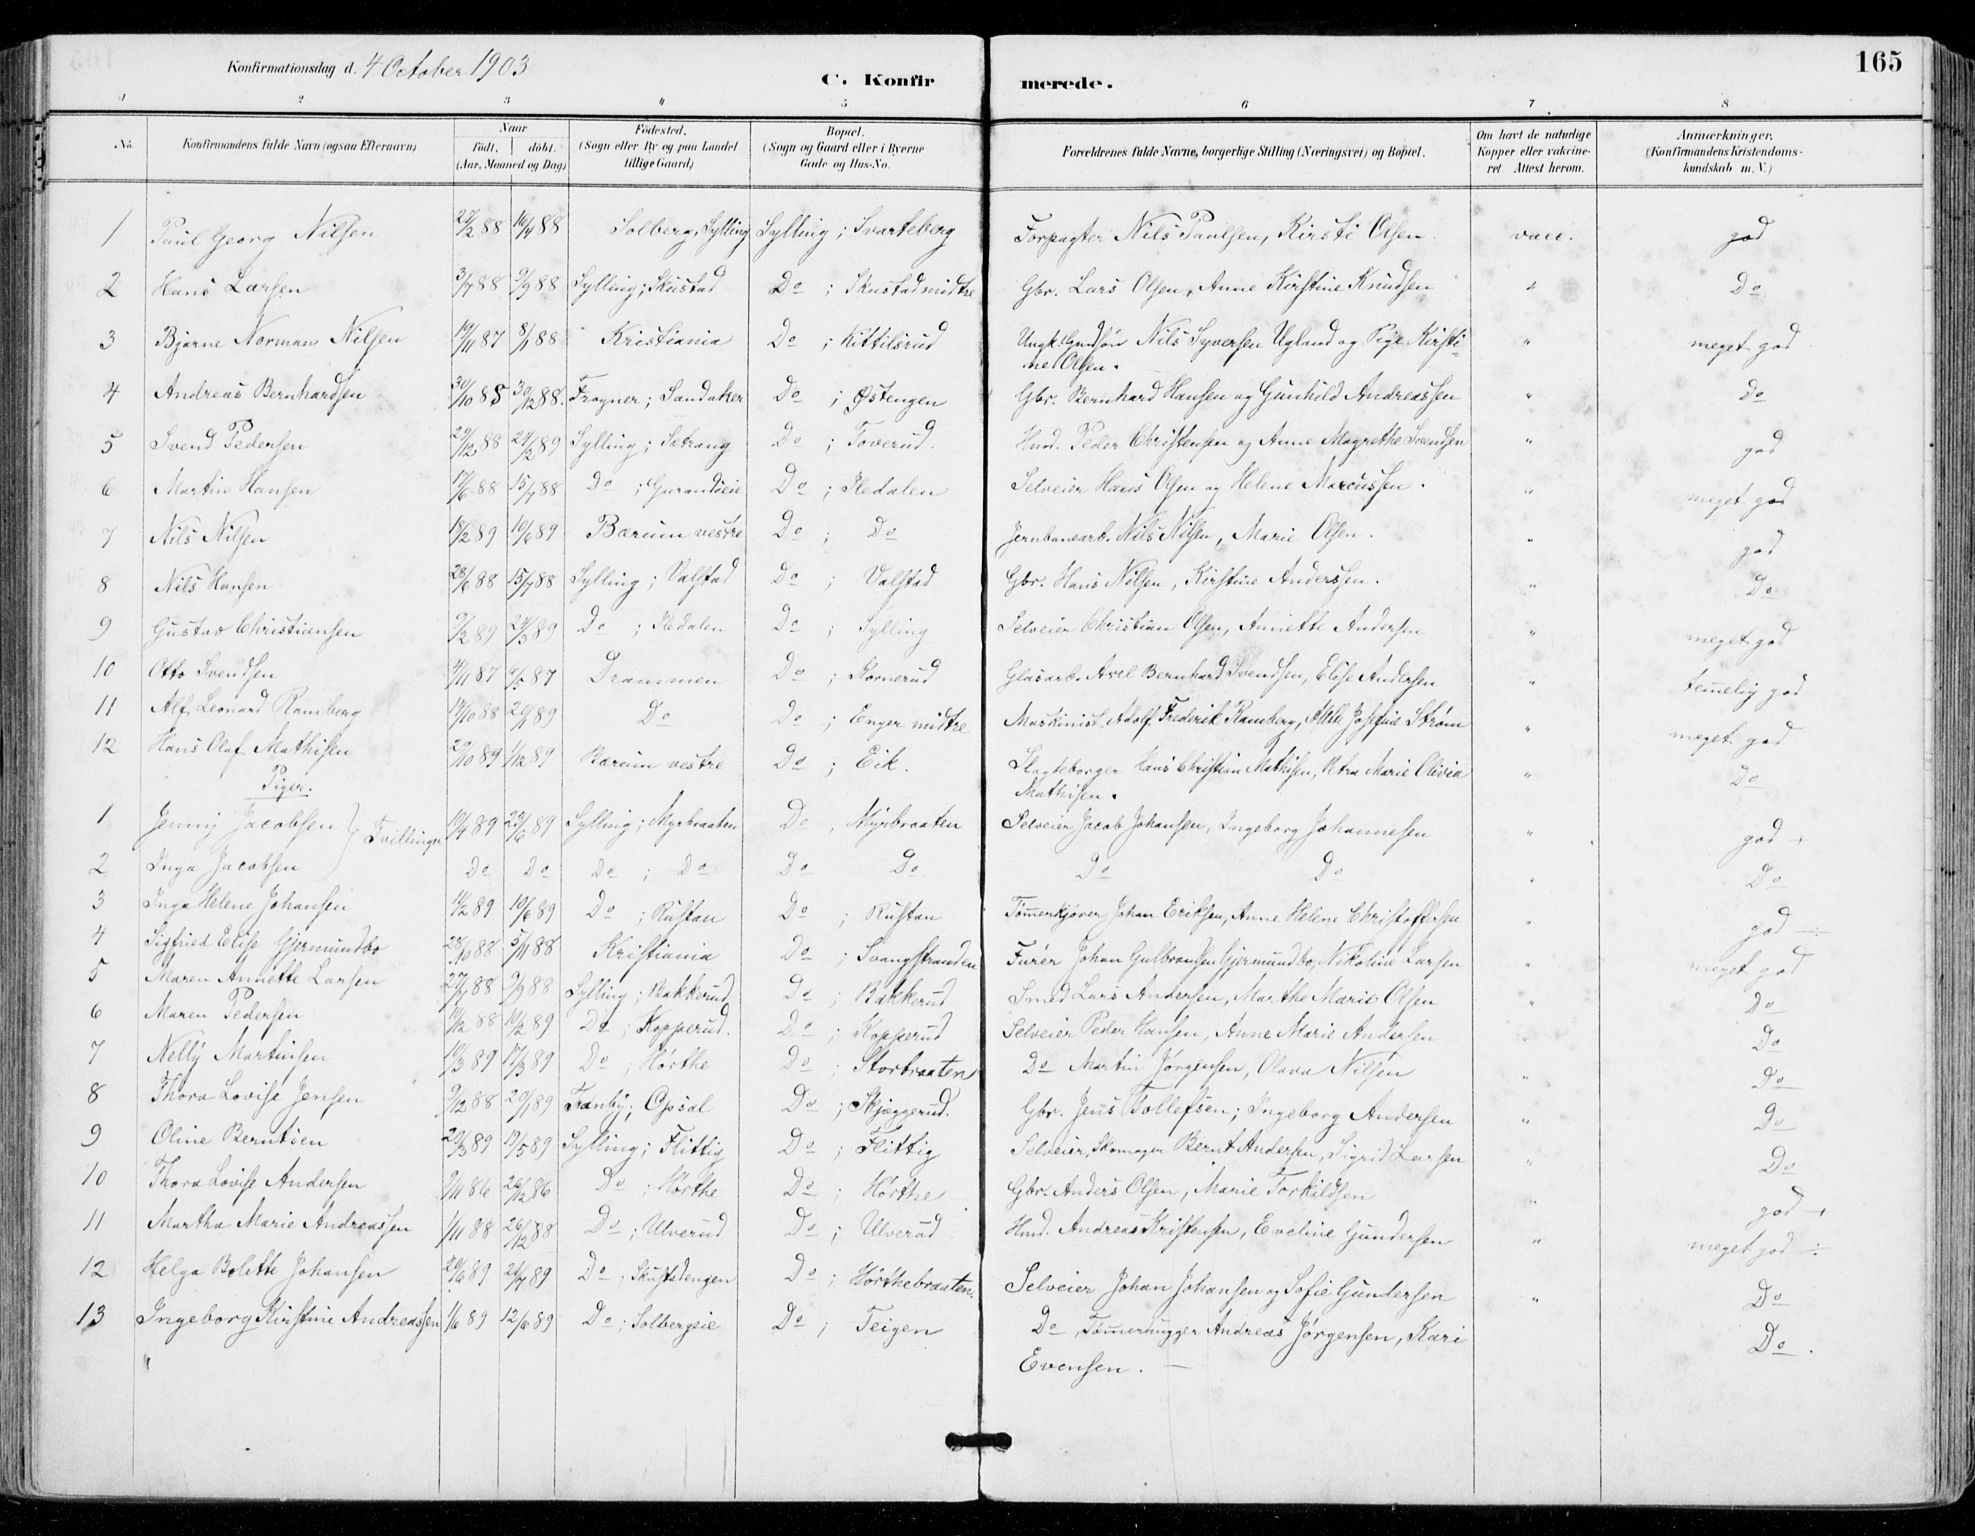 165
Konfirmationsdag d. 4 October 1903
C. Konfirmerede.
1 2 3 4 5 6 7 8
No. Konfirmandens fulde Navn (ogsaa Efternavn) Naar Født. døbt. (Aar, Maaned og Dag) Fødested. (Sogn eller By og paa Landet tillige Gaard) Bopæl. (Sogn og Gaard eller i Byerne Gade og Hus-No. Forældrenes fulde Navne, borgerlige Stilling (Næringsvei) og Bopæl. Om havt de naturlige Kopper eller vakcineret Attest herom. Anmærkninger. (Konfirmandens Kristendomskundskab m. V.)
1 Paul Georg Nilsen 27/2 88 16/4 88 Solberg, Sylling Sylling ; Svarteberg Forpagter Nils Paulsen, Kirsti Olsen. vacc. god
2 Hans Larsen 3/7 88 9/9 88 Sylling; Skustad Do ; Skustad midtre Gbr. Lars Olsen, Anne Kirstine Knudsen " Do
3 Bjarne Norman Nilsen 19/11 87 8/1 88 Kristiania Do ; Kittilsrud Ungk. Gmdsøn Nils Syversen Ugland og Pige Kirsti-
ne Olsen. " meget god
4 Andreas Bernhardsen 30/10 88 30/12 88. Frogner; Sandaker Do ; Østengen Gbr. Bernhard Hansen og Gunhild Andreassen " Do
5 Svend Pedersen 29/12 88 24/2 89 Sylling; Sætrang Do ; Toverud. Hmd. Peder Christensen og Anne Magrethe Svendsen " god
6 Martin Hansen 17/6 88 15/7 88 Do ; Gurandseie Do ; Kedalen Selveier Hans Olsen og Helene Marcussen. " meget god
7 Nils Nilsen 18/2 89 10/6 89 Bærum vestre Do ; Do Jernbanearb. Nils Nilsen, Marie Olsen. " god
8 Nils Hansen 28/6 88 15/7 88 Sylling; Valstad Do ; Valstad Gbr. Hans Nilsen, Kirstine Anderssen. " Do
9 Gustav Christiansen 9/2 89 24/3 89 Do ; Kedalen Do ; Sylling Selveier Christian Olsen, Annette Andersen " meget god
10 Otto Svendsen 4/11 87 /5 87 Drammen Do ; Kornerud Glasarb. Axel Bernhard Svendsen, Elise Andersen " temelig god
11 Alf Leonard Ramberg 14/10 88 20/1 89 Do Do ; Enger midtre Maskinist Adolf Frederik Ramberg, Josefine Strøm " meget god
12 Hans Olaf Mathisen 29/10 89 1/12 89 Bærum vestre Do ; Eik. Hans Christian Mathisen, Petra Marie Olivia
Mathisen. " Do
Piger.
1 Jenny Jacobsen } Tvillinger 19/4 89 23/6 89 Sylling; Myrbraaten Do , Myrbraaten Selveier Jacob Johansen, Ingeborg Johannesen " god +
2 Inga Jacobsen Do Do Do ; Do Do Do Do Do " Do
3 Inga Helene Johansen 11/2 89 10/6 89 Do ; Rustan Do ; Rustan Tømmerkjører Johan Eriksen, Anne Helene Christoffersen " god ÷
4 Sigfried Elise Gjermundbo 28/10 88 5/11 88 Kristiania Do ; Svangstranden Furér Johan Gulbransen Gjermundbo, Nikoline Larsen " meget god
5 Maren Annette Larsen 27/7 88 9/9 88 Sylling; Bakkerud Do ; Bakkerud Smed Lars Andersen, Marthe Marie Olsen " Do
6 Maren Pedersen 10/12 88 10/2 89 Do ; Kopperud. Do ; Kopperud Selveier Peder Hansen, Anne Marie Andersen " Do
7 Nelly Martinsen 10/3 89 17/3 89 Do ; Hørthe Do ; Storbraaten Do Martin Jørgensen, Olava Nilsen " Do
8 Thora Lovise Jensen 9/12 88 20/1 89 Tranby; Opsal Do ; Skjæggerud. Gbr. Jens Tollefsen; Ingeborg Andersen " Do
9 Oline Berntsen 29/3 89 19/5 89 Sylling; Flittig Do ; Flittig Selveier, Skomager Bernt Andersen, Sigrid Larsen " Do
10 Thora Lovise Andersen 9/11 86 26/12 86 Do ; Hørthe Do ; Hørthe Gbr. Anders Olsen, Marie Torkildsen " god +
11 Martha Marie Andreassen 1/11 88 26/12 88 Do ; Ulverud Do ; Ulverud Hmd. Andreas Kristensen, Eveline Gundersen " meget god ÷
12 Helga Bolette Johansen 20/6 89 21/7 89 Do ; Skustadengen Do ; Hørthebraaten. Selveier Johan Johansen og Sofie Gundersen " Do
13 Ingeborg Kirstine Andreassen 1/6 89 12/6 89 Do ; Solbergeie Do ; Teigen Do , Tømmerhugger Andreas Jørgensen, Kari
Evensen. — Do.
"